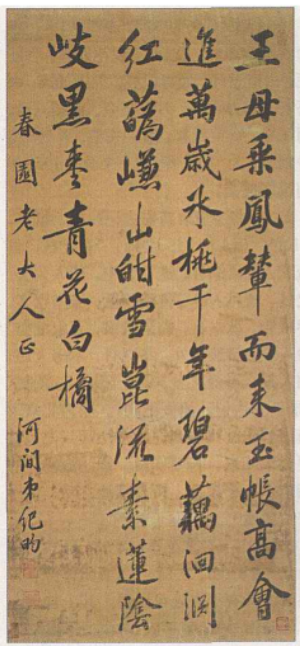 王母乘鳳輦而来玉帳高會
進萬歲氷桃千年碧藕洞淵
紅蘤嵰山甜雪崑流素蓮陰
岐黑棗青花白橘
春圃老大人正
河間弟紀昀